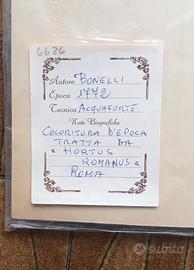 6626
Autore BONELLI
Epoca 1772
Tecnica ACQUAFORTE
Note Biografiche
COLORITURA D'EPOCA
TRATTA DA
"HORTUS
ROMANUS"
ROMA
subito